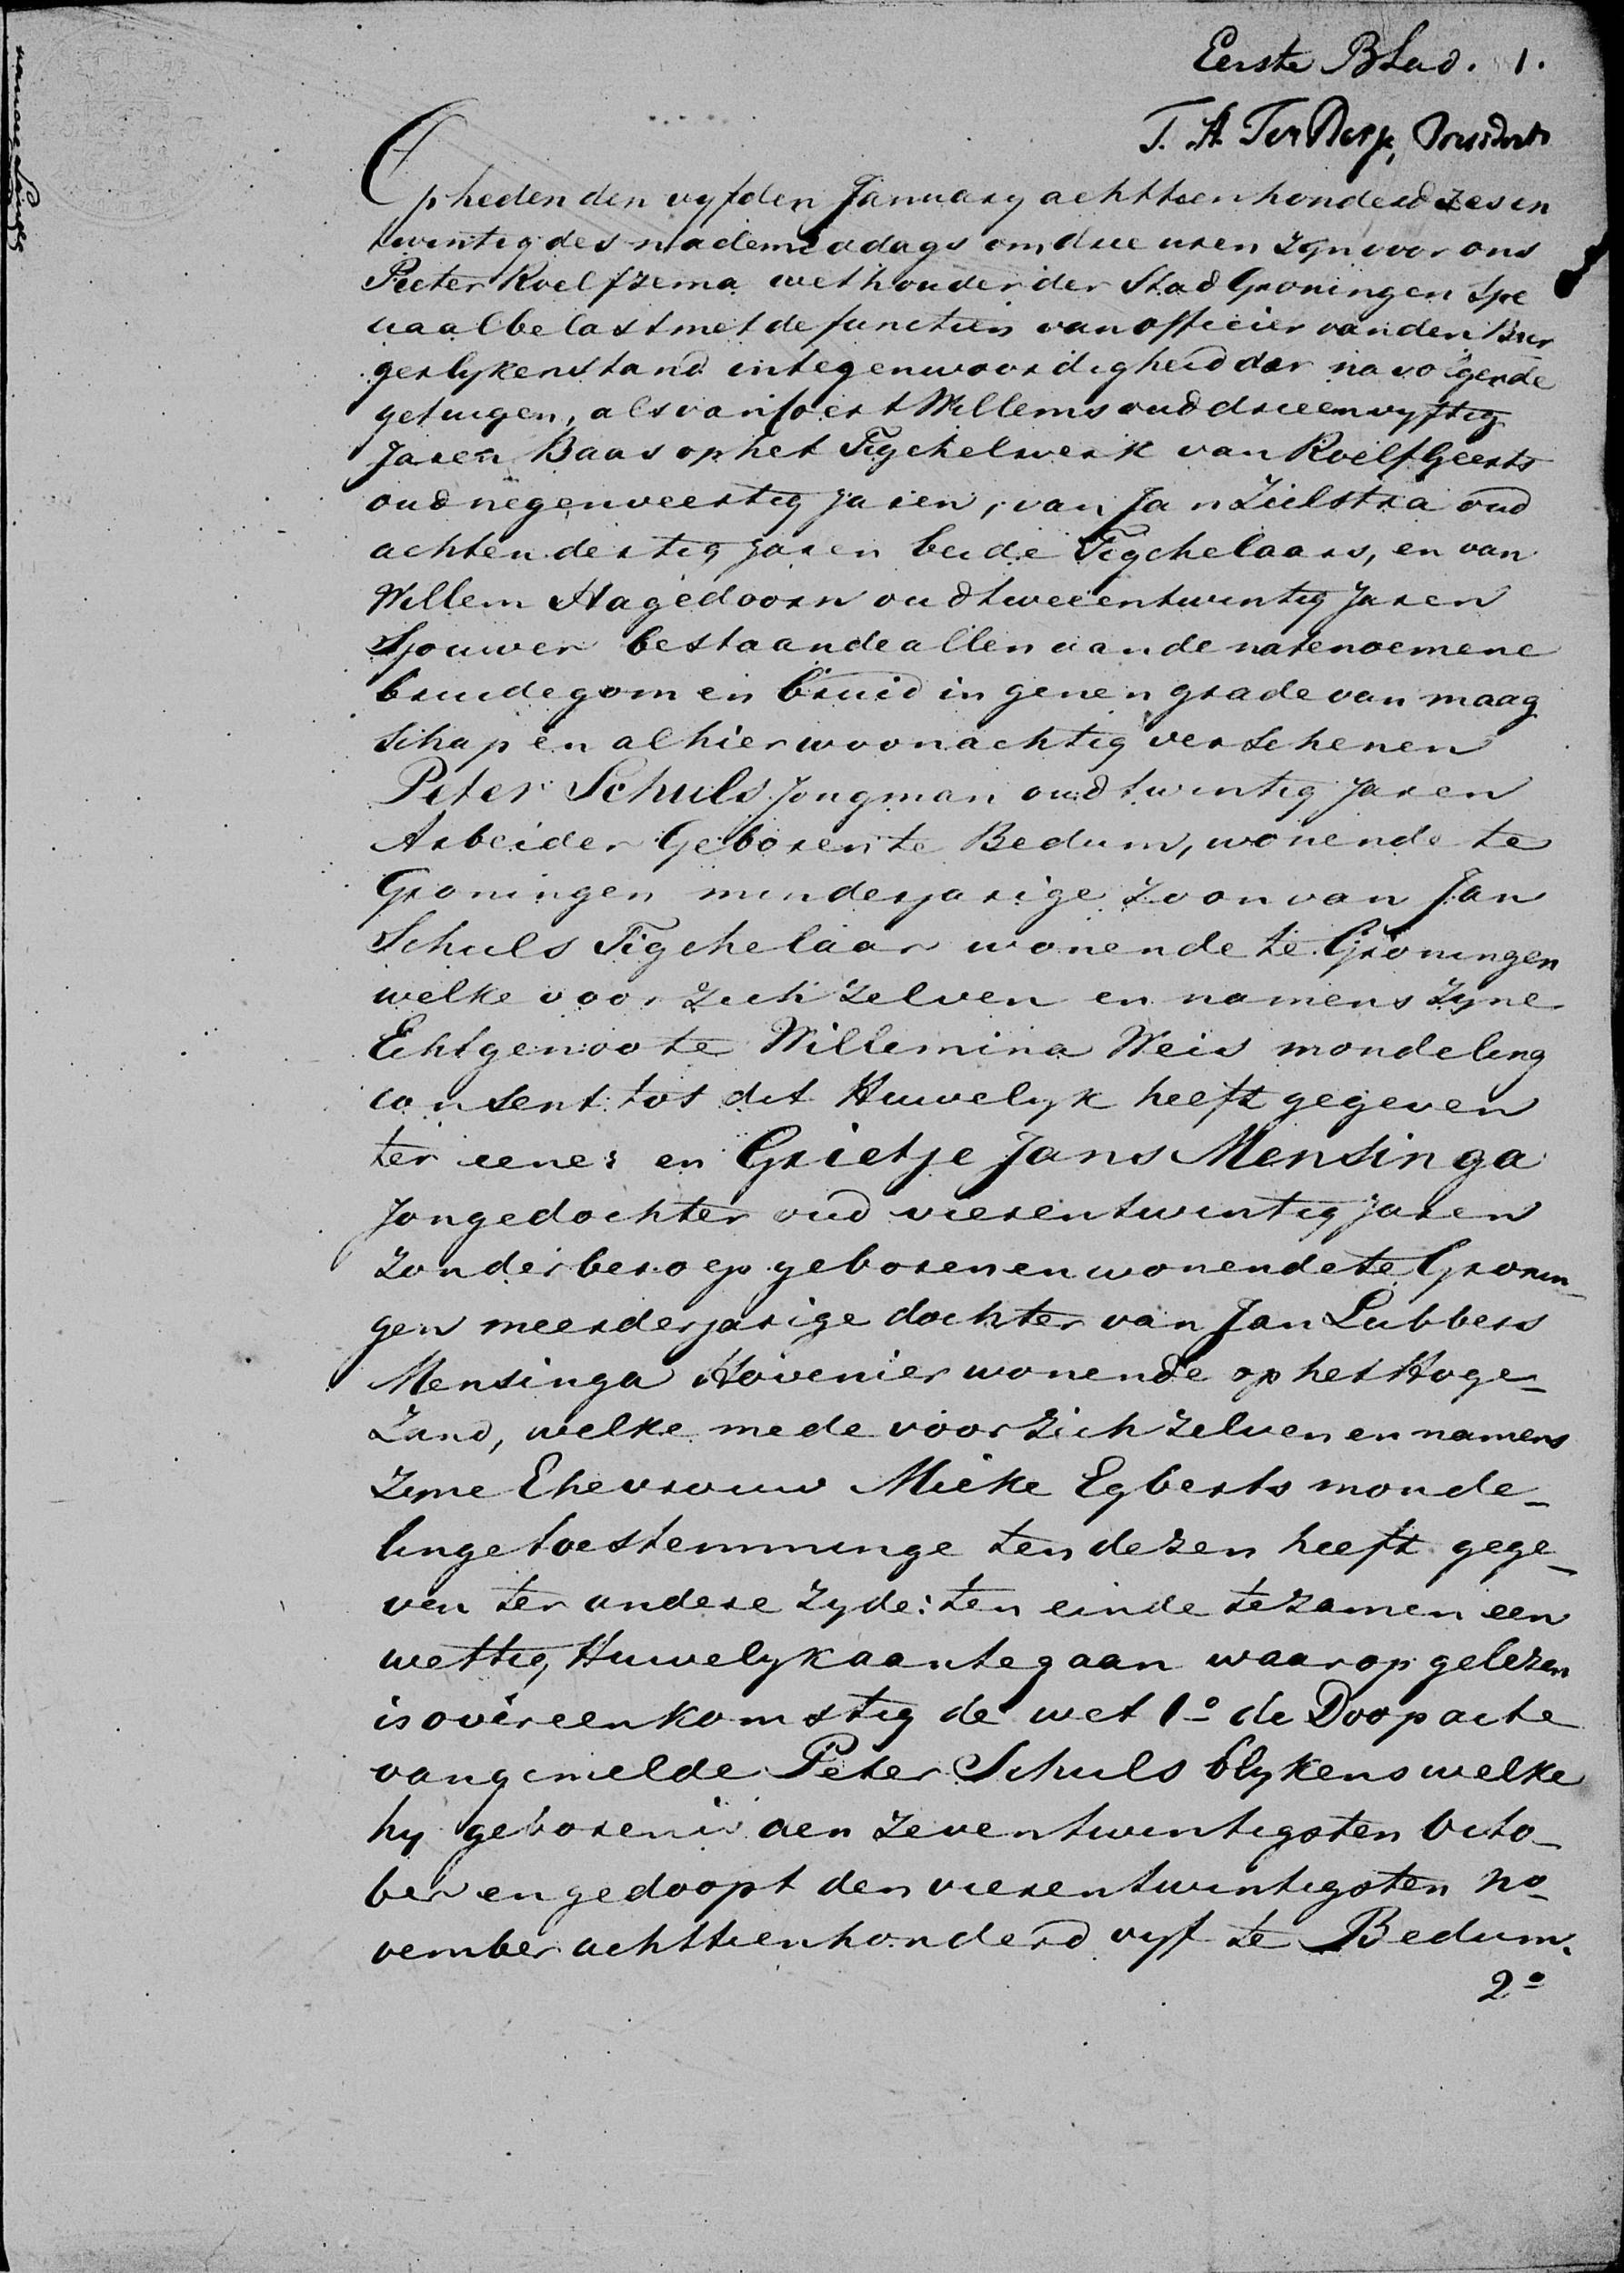 Eerste Blad. 1.
Op heden den vyfden January achttienhonderd zes en
twintig des nademiddags om drie uren zyn voor ons
Pieter Roelfzema wethouder der Stad Groningen Spe
ciaal belast met de functien van officier van den Bur
gerlyken stand in tegenwoordigheid der navolgende
getuigen, als van Geert Willems oud drieenvyftig
Jaren Baas op het Tigchelwerk van Roelf Geerts
oud negenveertig jaren, van Jan Zielstra oud
achtendertig jaren beide Tigchelaars, en van
Willem Hagedoorn oud tweeentwintig Jaren
Sjouwer bestaande allen aan de natenoemene
bruidegom en bruid in genen grade van maag
schap en alhier woonachtig verschenen
Peter Schuls Jongman oud twintig Jaren
Arbeider Geboren te Bedum, wonende te
Groningen minderjarige zoon van Jan
Schuls Tigchelaar wonende te Groningen
welke voor zich zelven en namens zyne
Echtgenoote Willemina Weis mondeling
consent tot dit Huwelyk heeft gegeven
ter eener en Grietje Jans Mensinga
Jongedochter oud vierentwintig jaren
zonder beroep geboren en wonende te Gronin-
gen meerderjarige dochter van Jan Lubbers
Mensinga Hovenier wonende op het Hoge-
Zand, welke mede voor zich zelven en namens
zyne Ehevrouw Mieke Egberts monde-
linge toestemminge ten dezen heeft gege-
ven ter andere zyde: ten einde te zamen een
wettig Huwelyk aantegaan waarop gelezen
is overeenkomstig de wet 1o de Doopacte
van gemelde Peter Schuls blykens welke
hy geboren is den zeventwintigsten Octo-
ber en gedoopt den vierentwintigsten No-
vember achttienhonderd vyf te Bedum.
2o